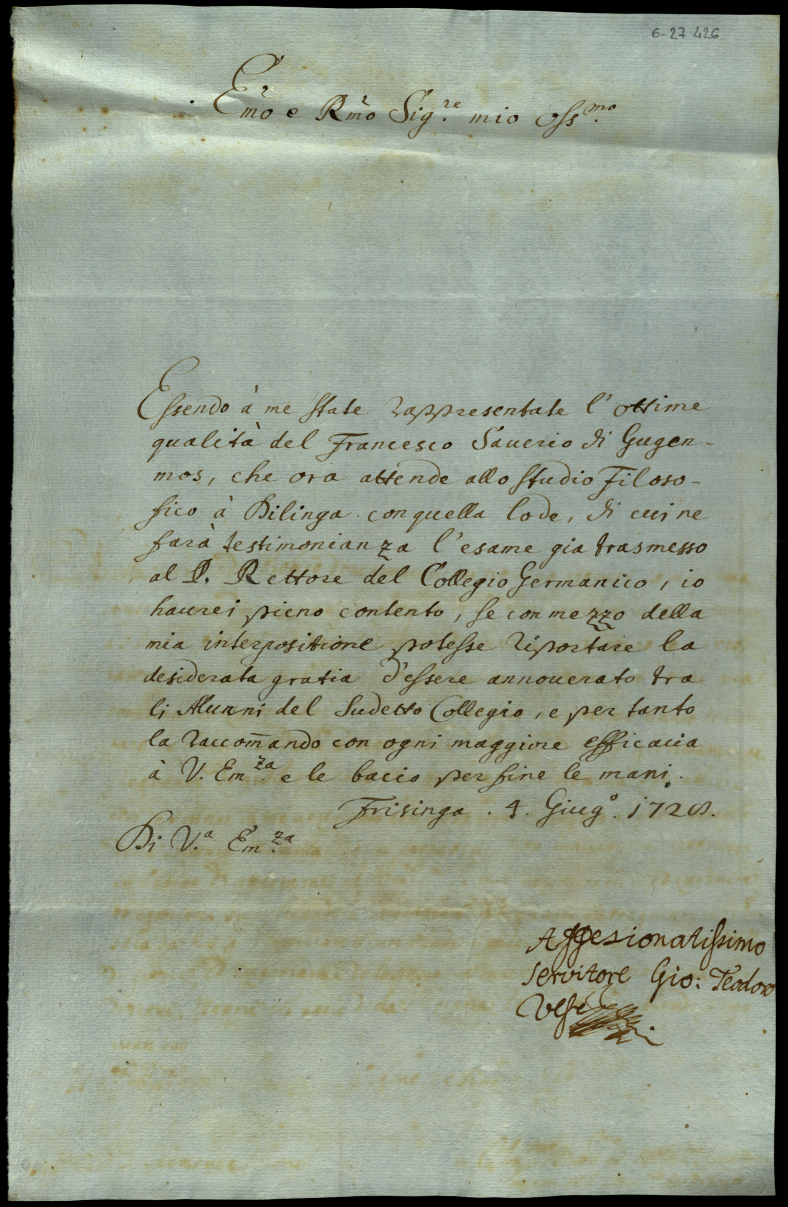 6-27 426
Em̃o e Rm̃o Sig.re mio oss.mo
Essendo à me state rappresentate l'ottime
qualità del Francesco Sauerio di Gugen-
mos, che ora attende allo studio Filoso-
fico à Dilinga con quella lode, di cui ne
farà testimonianza l'esame gia trasmesso
al P. Rettore del Collegio Germanico, io
haurei pieno contento, se con mezzo della
mia interpositione potesse riportare la
desiderata gratia d'essere annouerato tra
li Alunni del sudetto Collegio, e per tanto
la raccom̃ando con ogni maggiore efficacia
à V. Em.za e le bacio per fine le mani.
Frisinga. 4. Giug.o 1728.
Di V.a Em.za
Affesionatissimo
servitore Gio: Teodoro